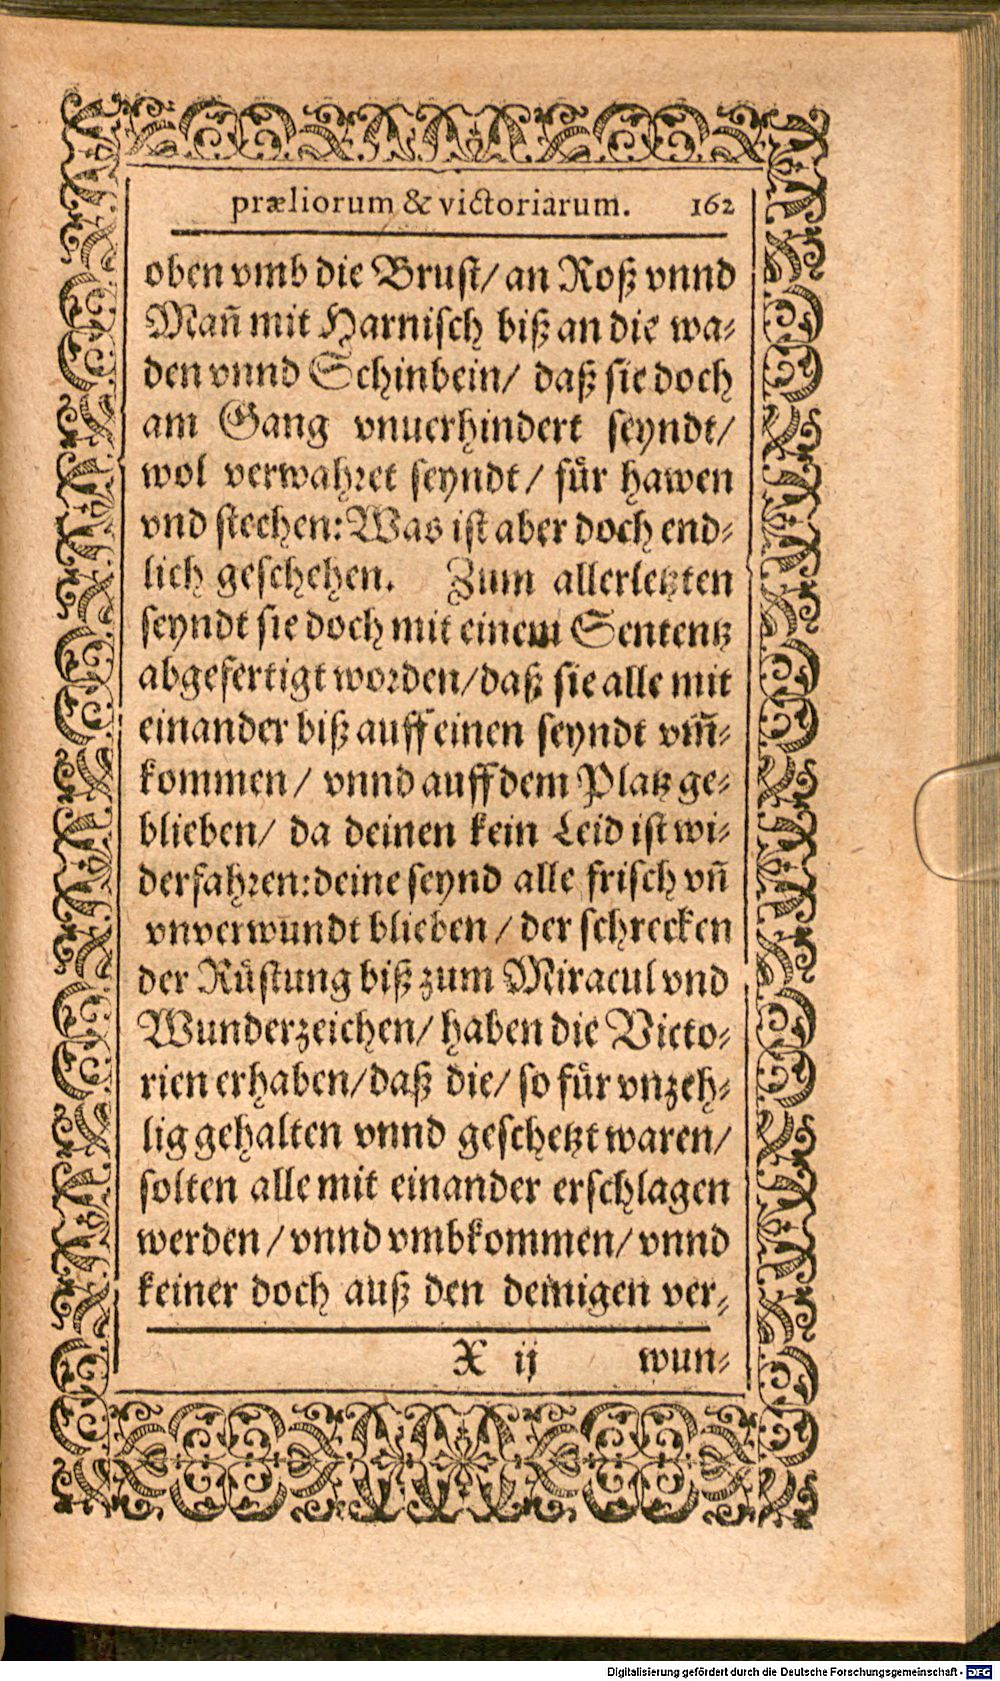 præliorum & victoriarum. 162
oben vmb die Brust/ an Roß vnnd
Mañ mit Harnisch biß an die wa-
den vnnd Schinbein/ daß sie doch
am Gang vnuerhindert seyndt/
wol verwahret seyndt/ für hawen
vnd stechen: Was ist aber doch end-
lich geschehen. Zum allerletzten
seyndt sie doch mit einem Sententz
abgefertigt worden/ daß sie alle mit
einander biß auff einen seyndt vm̃-
kommen/ vnnd auff dem Platz ge-
blieben/ da deinen kein Leid ist wi-
derfahren: deine seynd alle frisch vñ
vnverwundt blieben/ der schrecken
der Rüstung biß zum Miracul vnd
Wunderzeichen/ haben die Victo-
rien erhaben/ daß die/ so für vnzeh-
lig gehalten vnnd geschetzt waren/
solten alle mit einander erschlagen
werden/ vnnd vmbkommen/ vnnd
keiner doch auß den deinigen ver-
X ij wun-
Digitalisierung gefördert durch die Deutsche Forschungsgemeinschaft - DFG